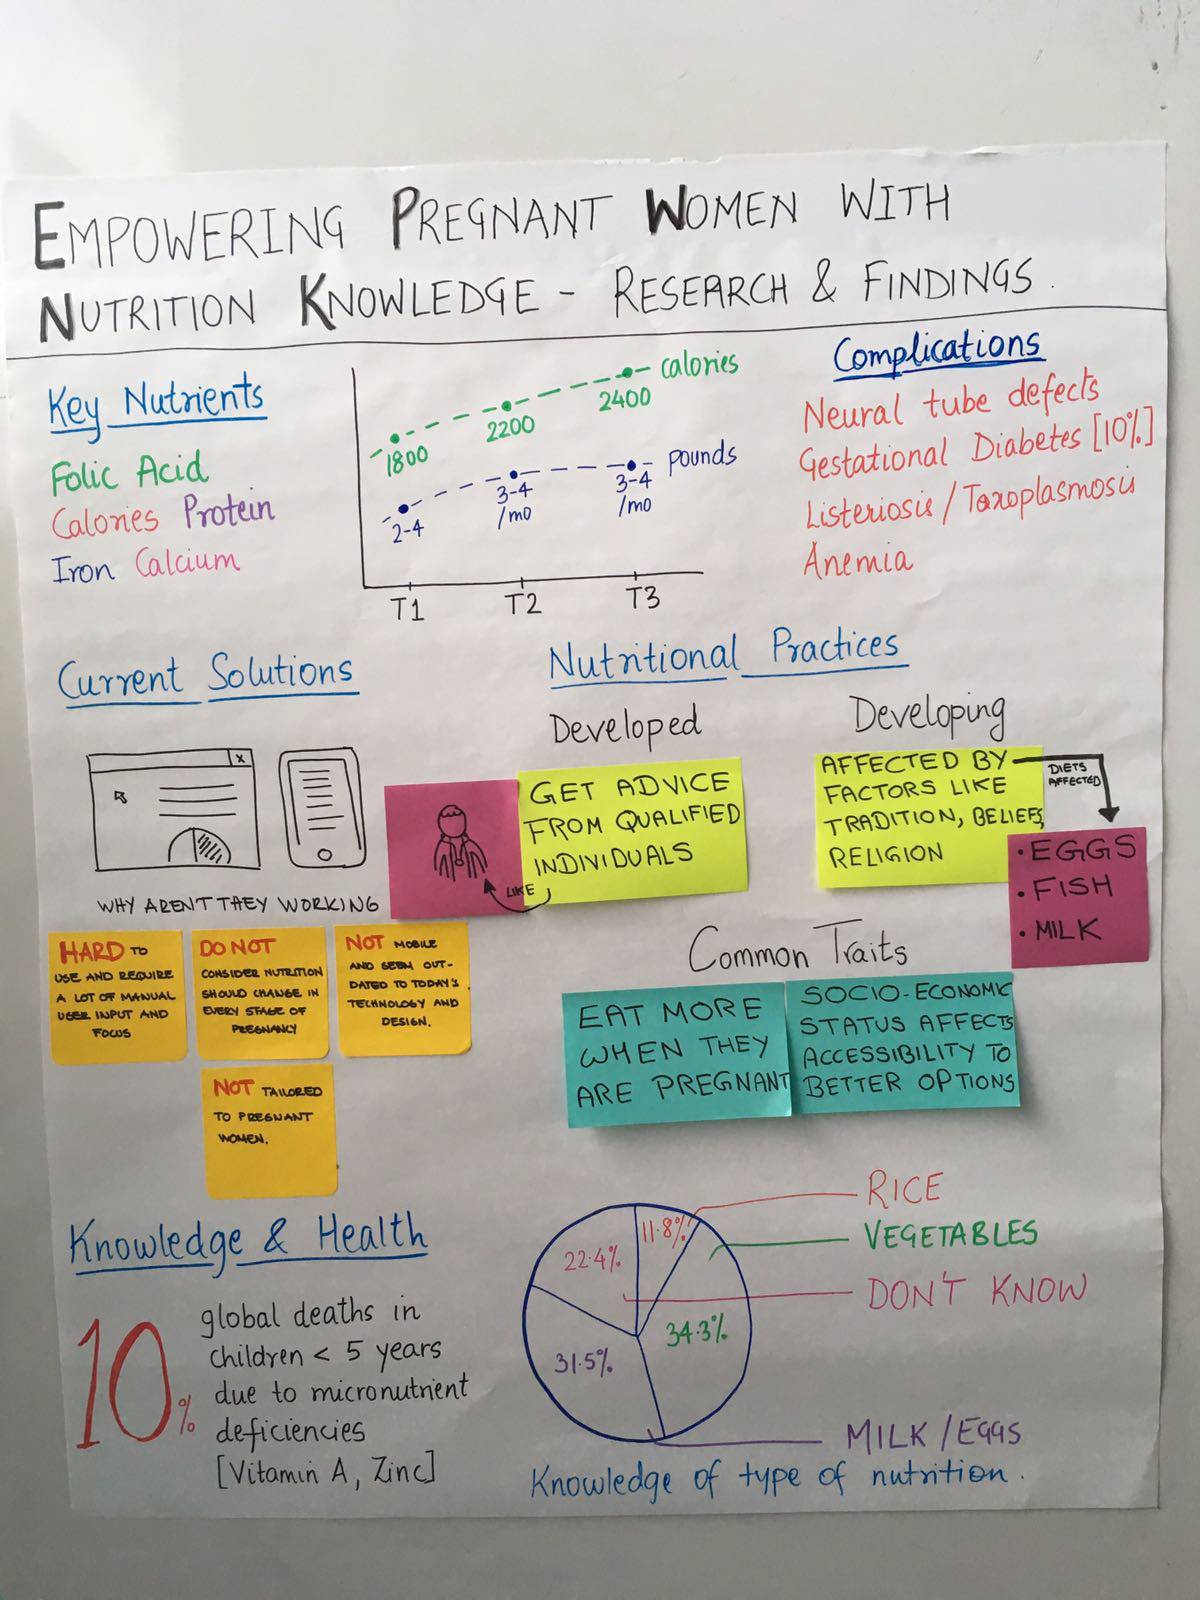 EMPOWERING PREGNANT WOMEN WITH
NUTRITION KNOWLEDGE - RESEARCH & FINDINGS.
Key Nutrients
Folic Acid
Calories Protein
Iron Calcium
calories
1800
2200
2400
pounds
2-4
3-4
/mo
3-4
/mo
T1
T2
T3
Complications
Neural tube defects
Gestational Diabetes [10%]
Listeriosis / Toxoplasmosis
Anemia
Current Solutions
X
WHY AREN'T THEY WORKING
HARD TO
USE AND REQUIRE
A LOT OF MANUAL
USER INPUT AND
FOCUS
DO NOT
CONSIDER NUTRITION
SHOULD CHANGE IN
EVERY STAGE OF
PREGNANCY
NOT MOBILE
AND SEEM OUT-
DATED TO TODAY'S
TECHNOLOGY AND
DESIGN.
NOT TAILORED
TO PREGNANT
WOMEN.
Nutritional Practices
Developed
GET ADVICE
FROM QUALIFIED
INDIVIDUALS
LIKE
Developing
AFFECTED BY
FACTORS LIKE
TRADITION, BELIEFS,
RELIGION
DIETS
AFFECTED
• EGGS
• FISH
• MILK
Common Traits
EAT MORE
WHEN THEY
ARE PREGNANT
SOCIO-ECONOMIC
STATUS AFFECTS
ACCESSIBILITY TO
BETTER OPTIONS
Knowledge & Health
10%
global deaths in
children < 5 years
due to micronutrient
deficiencies
[Vitamin A, Zinc]
11.8%
22.4%
34.3%
31.5%
RICE
VEGETABLES
DON'T KNOW
MILK / EGGS
Knowledge of type of nutrition.